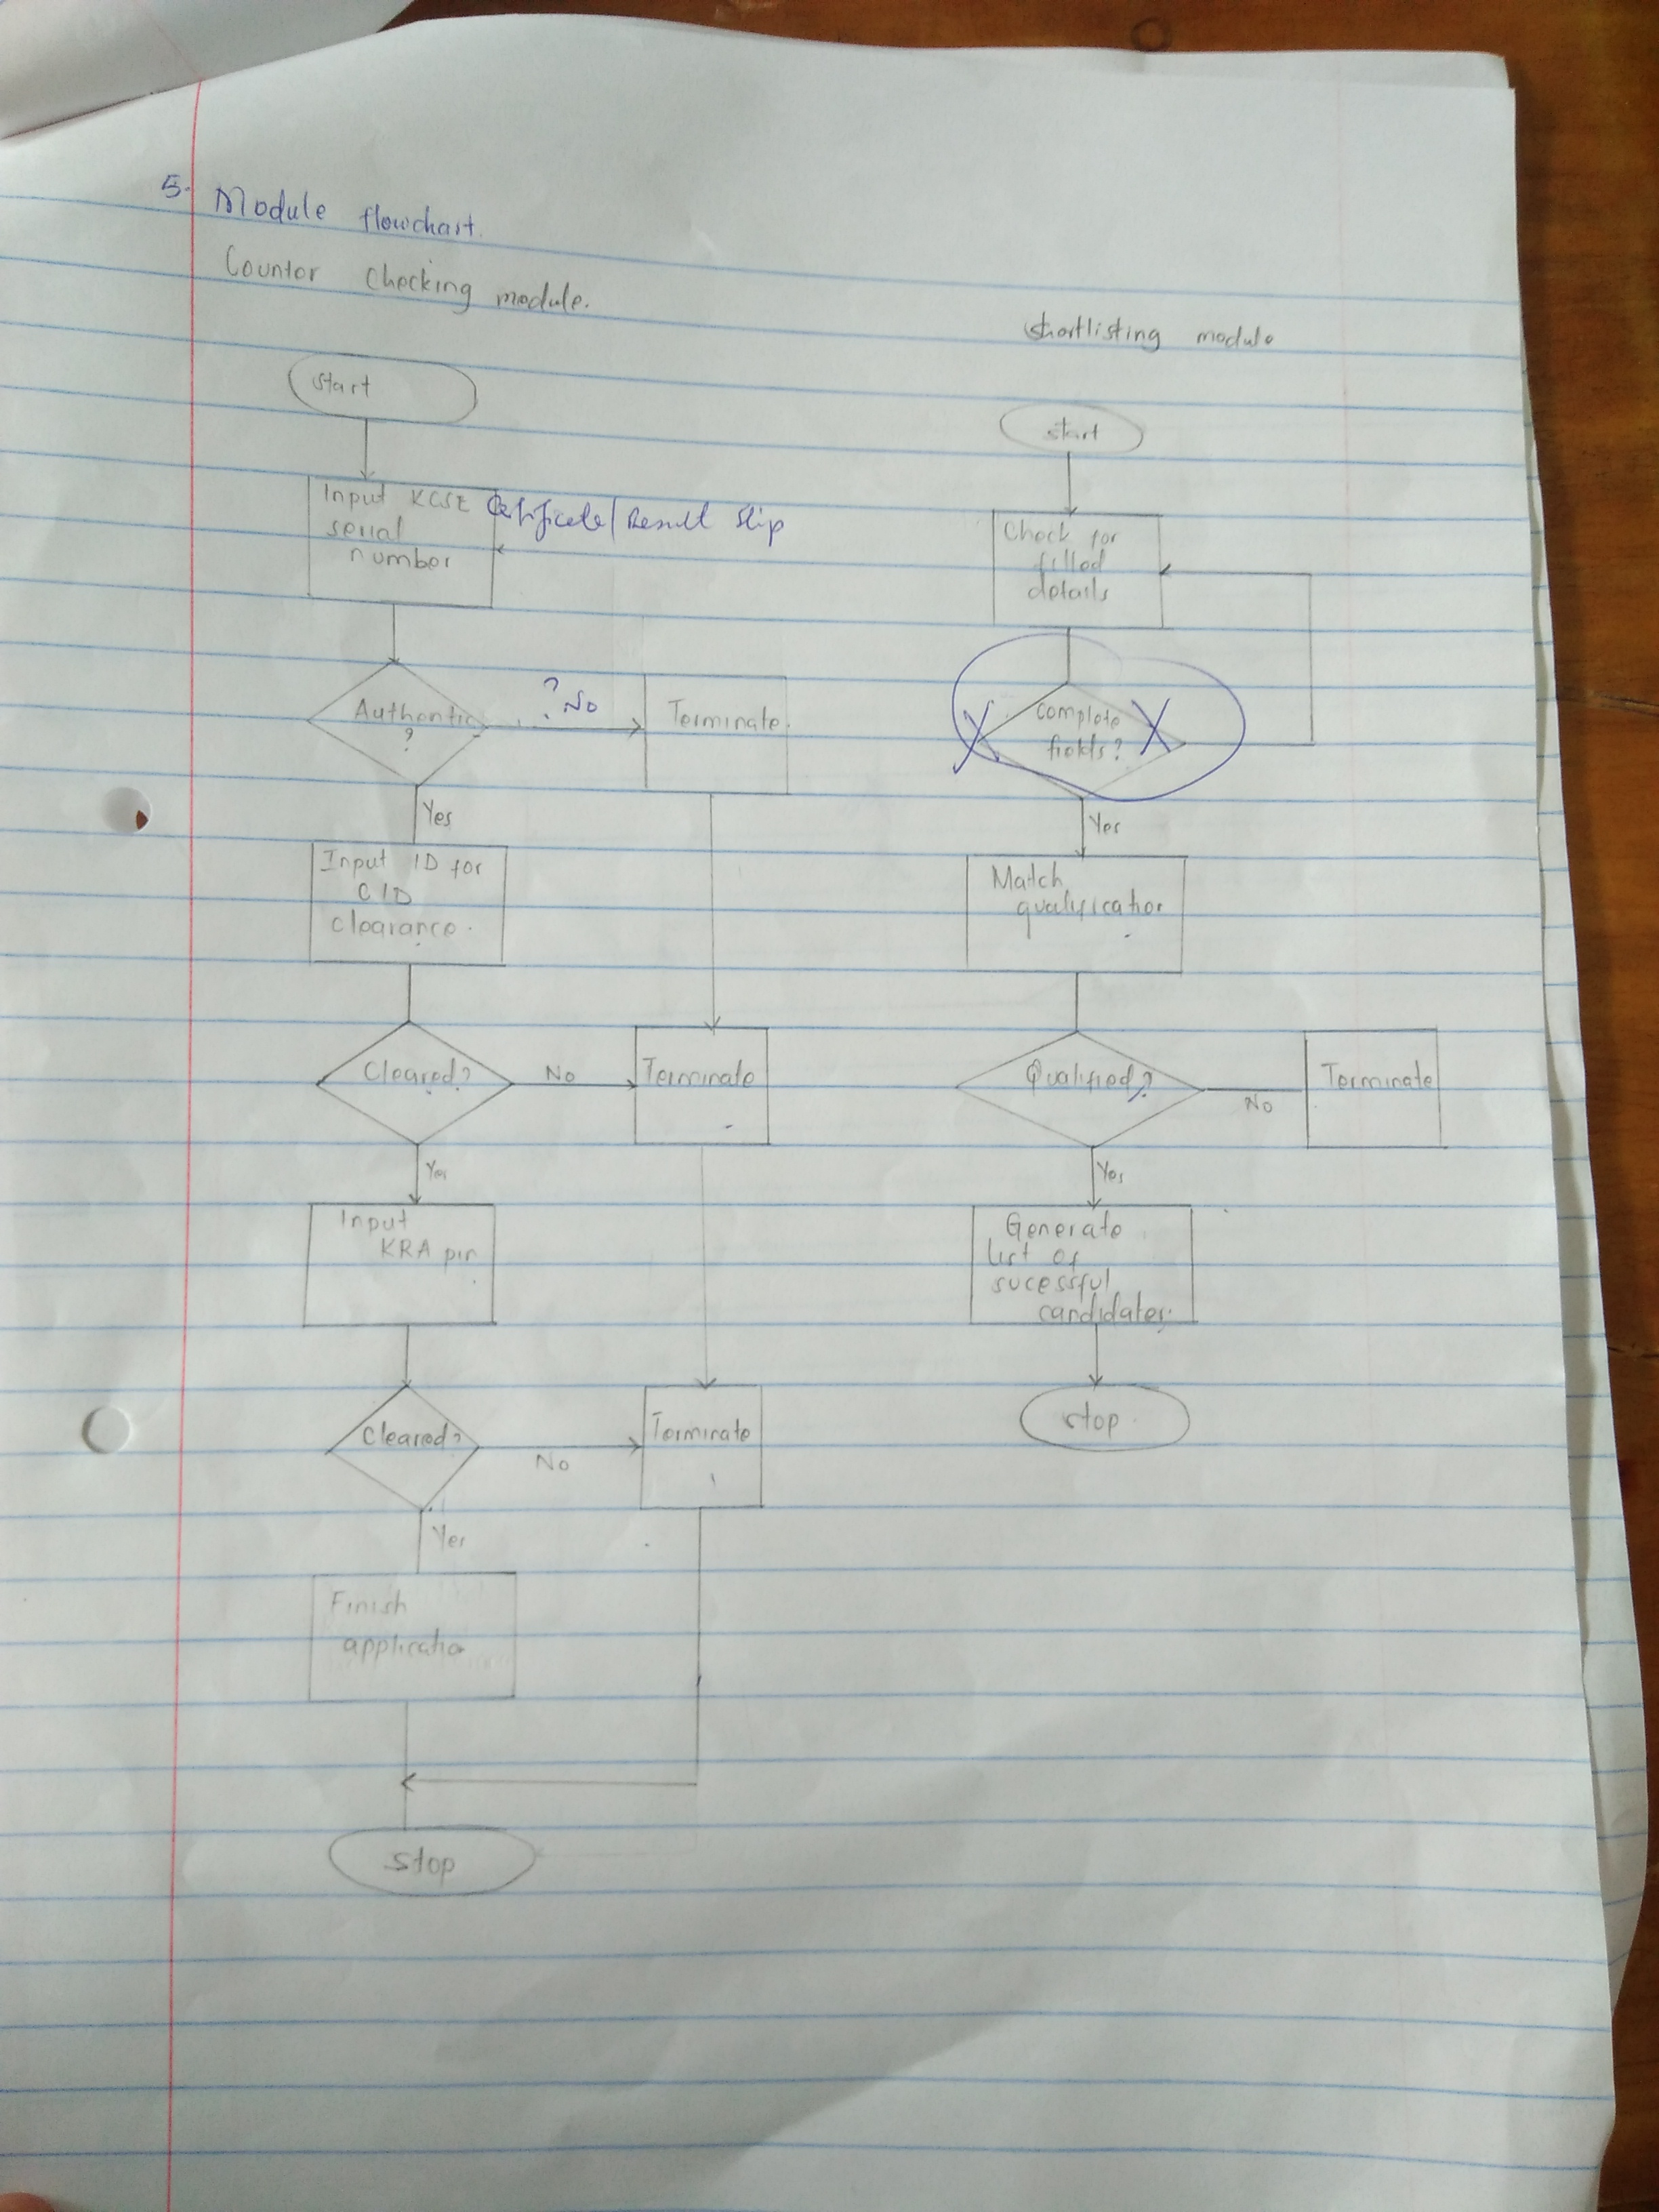 5. Module flowchart.
Counter checking module.
start
Input KCSE Certificate/Result Slip
serial
number
Authentic
?
? No
Terminate.
Yes
Input ID for
CID
clearance.
Cleared?
No
Terminate
Yes
Input
KRA pin
Cleared?
No
Terminate
Yes
Finish
application
stop
shortlisting module
start
Check for
filled
details
X
complete
fields?
X
Yes
Match
qualification
Qualified?
No
Terminate
Yes
Generate
list of
sucessful
candidates.
stop